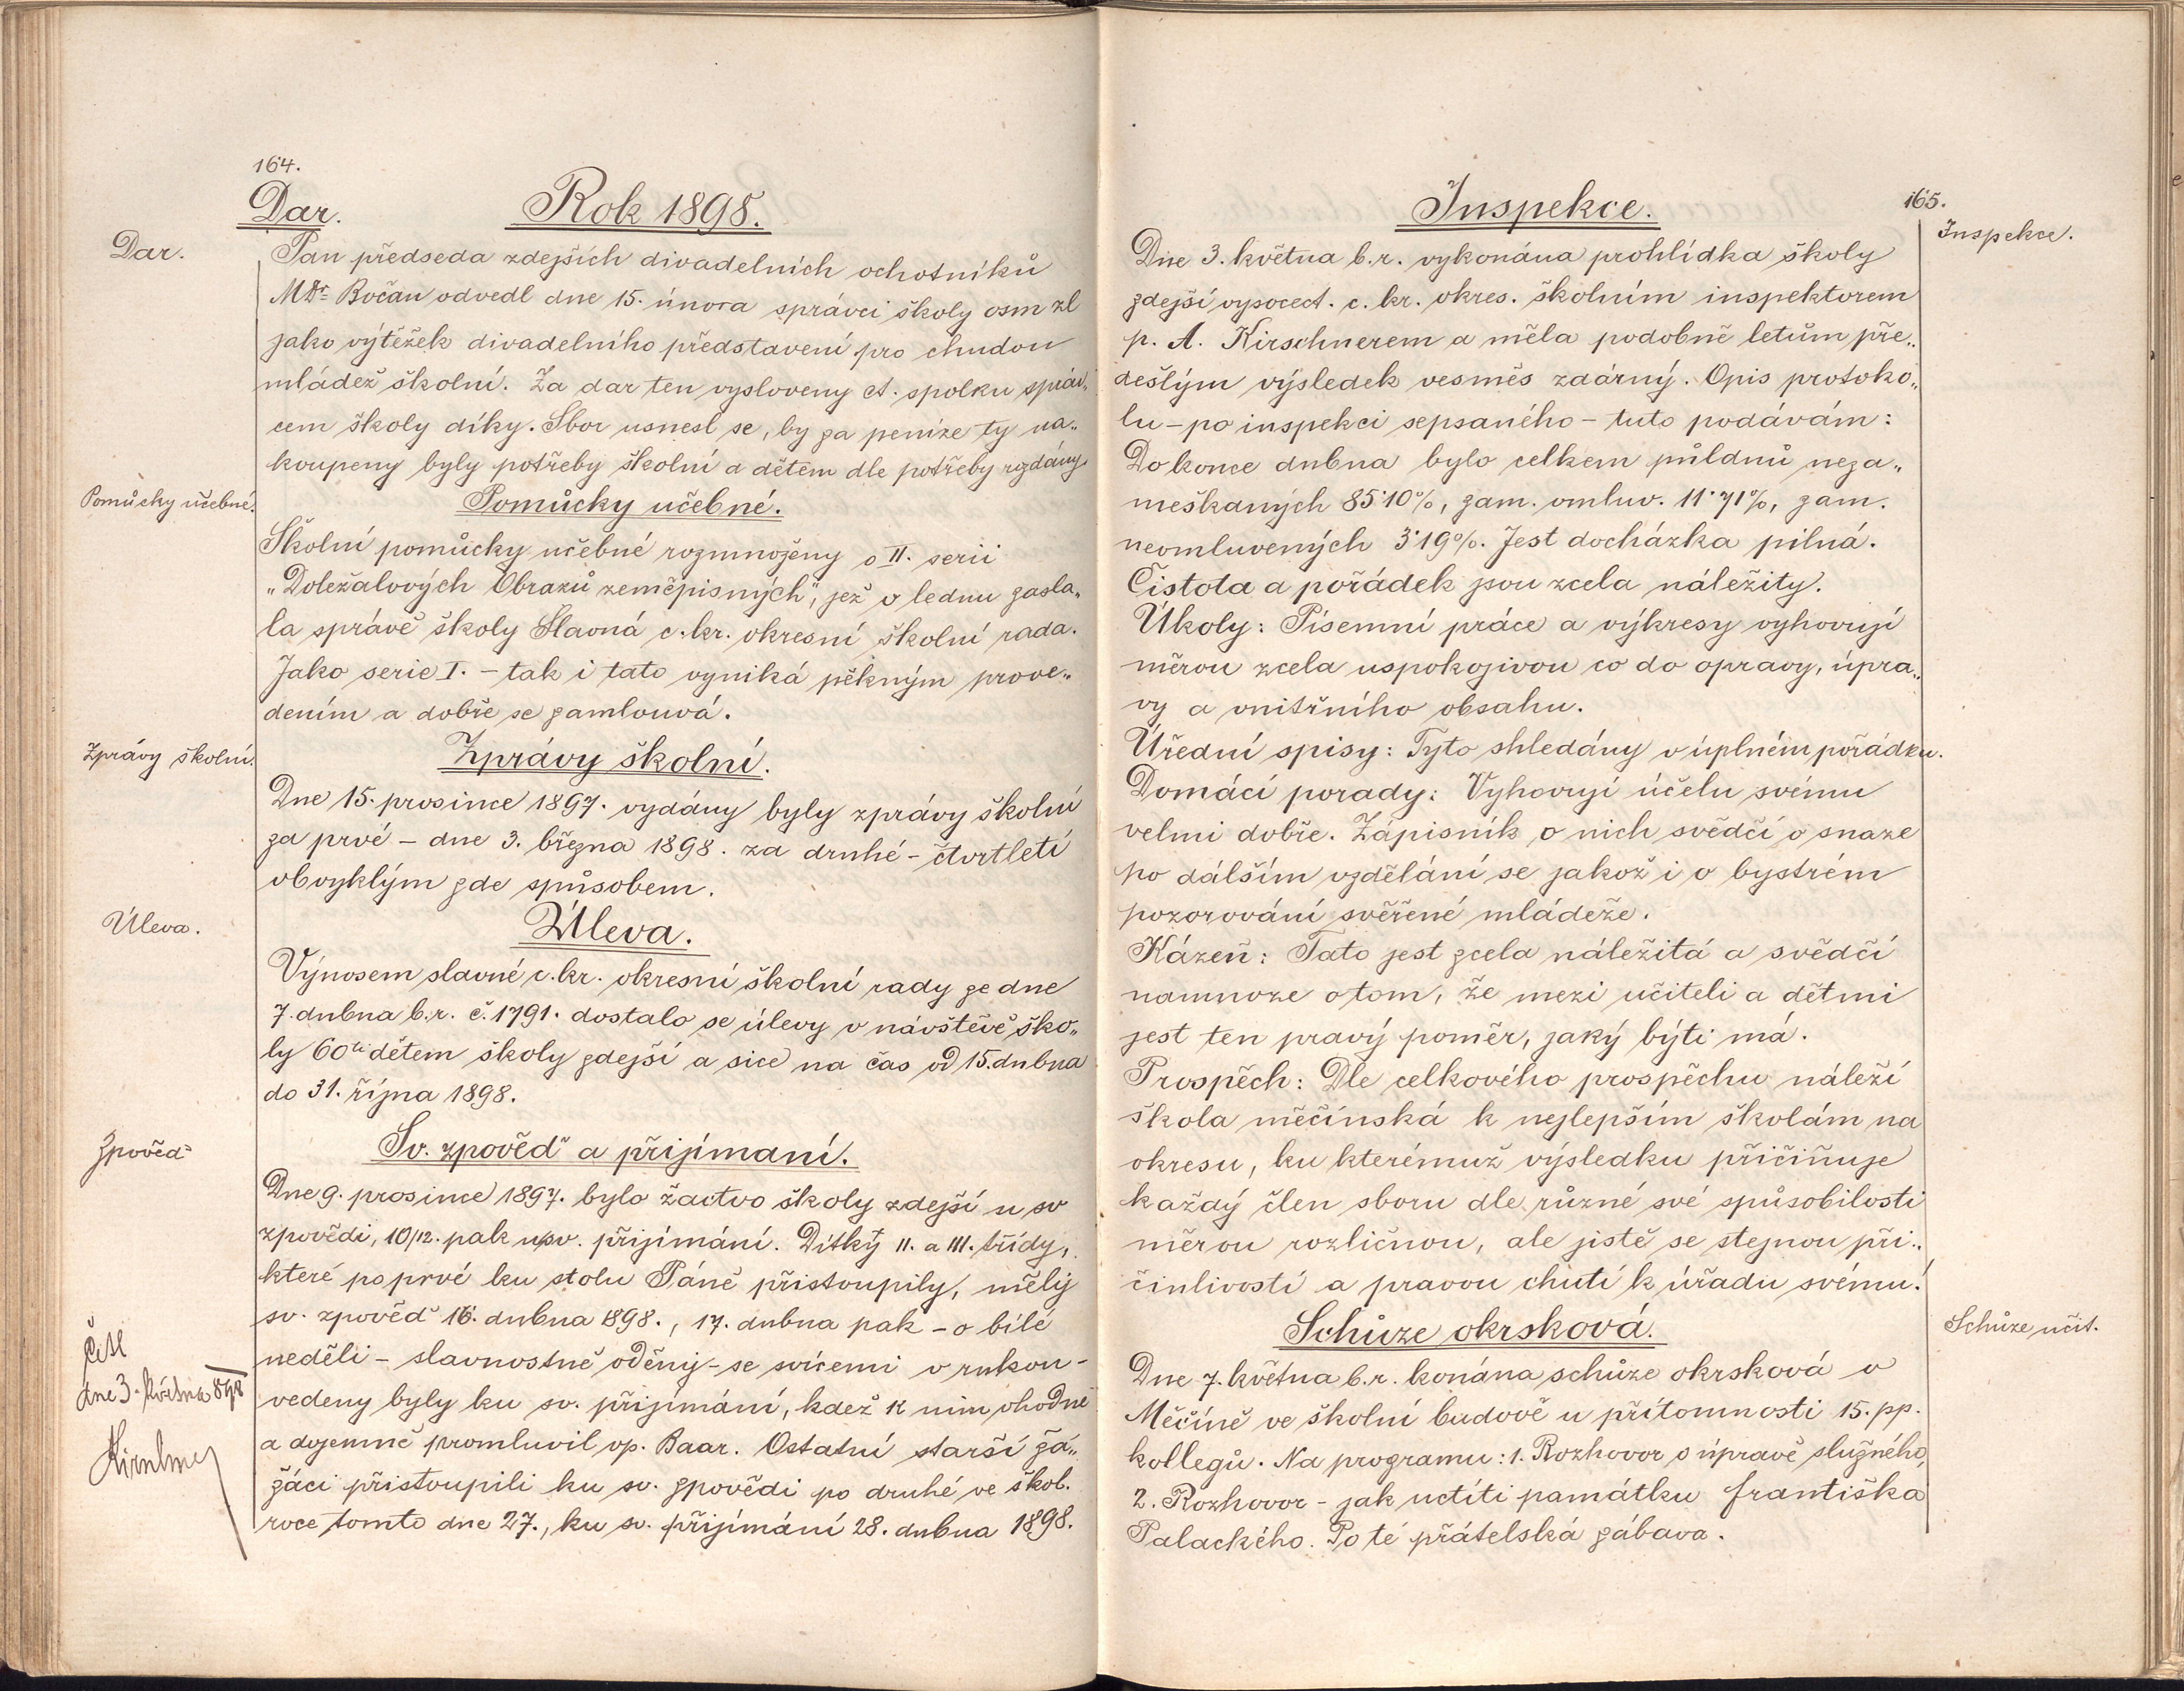 164.
Dar. Rok 1898.
Dar.
Pan předseda zdejších divadelních ochotníků
MDr. Bočan odvedl dne 15. února správci školy osm zl
jako výtěžek divadelního představení pro chudou
mládež školní. Za dar ten vysloveny ct. spolku správ„
cem školy díky. Sbor usnesl se, by za peníze ty na„
koupeny byly potřeby školní a dětem dle potřeby rozdány.
Pomůcky učebné.
Pomůcky učebné.
Školní pomůcky učebné rozmnoženy o II. serii
„Doležalových Obrazů zeměpisných", jež v lednu zasla„
la správě školy Slavná c. kr. okresní školní rada.
Jako serie I. – tak i tato vyniká pěkným prove„
dením a dobře se zamlouvá.
Zprávy školní.
Zprávy školní.
Dne 15. prosince 1897. vydány byly zprávy školní
za prvé – dne 3. března 1898. za druhé – čtvrtletí
obvyklým zde spůsobem.
Úleva.
Úleva.
Výnosem slavné c. kr. okresní školní rady ze dne
7. dubna b.r. č. 1791. dostalo se úlevy v návštěvě ško„
ly 60ti dětem školy zdejší a sice na čas od 15. dubna
do 31. října 1898.
Zpověď
Sv. zpověď a přijímaní.
Dne 9. prosince 1897. bylo žactvo školy zdejší u sv
zpovědi, 10/12. pak u sv. přijímání. Dítky II. a III. třídy,
které poprvé ku stolu Páně přistoupily, měly
sv. zpověď 16. dubna 1898., 17. dubna pak – o bílé
neděli – slavnostně oděny – se svícemi v rukou –
vedeny byly ku sv. přijímání, kdež k nim vhodně
a dojemně promluvil vp. Baar. Ostatní starší žá„
žáci přistoupili ku sv. zpovědi po druhé ve škol.
roce tomto dne 27., ku sv. přijímání 28. dubna 1898.
Četl
dne 3. května 898
Kirschner
165.
Inspekce.
Inspekce.
Dne 3. května b.r. vykonána prohlídka školy
zdejší vysocect. c. kr. okres. školním inspektorem
p. A. Kirschnerem a měla podobně letům pře„
dešlým výsledek vesměs zdárný. Opis protoko„
lu – po inspekci sepsaného – tuto podávám:
Do konce dubna bylo celkem půldnů neza„
meškaných 85·10%, zam. omluv. 11·71%, zam.
neomluvených 3·19%. Jest docházka pilná.
Čistota a pořádek jsou zcela náležity.
Úkoly: Písemní práce a výkresy vyhovují
měrou zcela uspokojivou co do opravy, úpra„
vy a vnitřního obsahu.
Úřední spisy: Tyto shledány v úplném pořádku.
Domácí porady: Vyhovují účelu svému
velmi dobře. Zápisník o nich svědčí o snaze
po dálším vzdělání se jakož i o bystrém
pozorování svěřené mládeže.
Kázeň: Tato jest zcela náležitá a svědčí
namnoze o tom, že mezi učiteli a dětmi
jest ten pravý poměr, jaký býti má.
Prospěch: Dle celkového prospěchu náleží
škola měčínská k nejlepším školám na
okresu, ku kterémuž výsledku přičiňuje
každý člen sboru dle různé své spůsobilosti
měrou rozličnou, ale jistě se stejnou při„
činlivostí a pravou chutí k úřadu svému!
Schůze okrsková.
Schůze učit.
Dne 7. května b.r. konána schůze okrsková v
Měčíně ve školní budově u přítomnosti 15. pp.
kollegů. Na programu: 1. Rozhovor o úpravě služného,
2. Rozhovor – jak uctíti památku Františka
Palackého. Po té přátelská zábava.